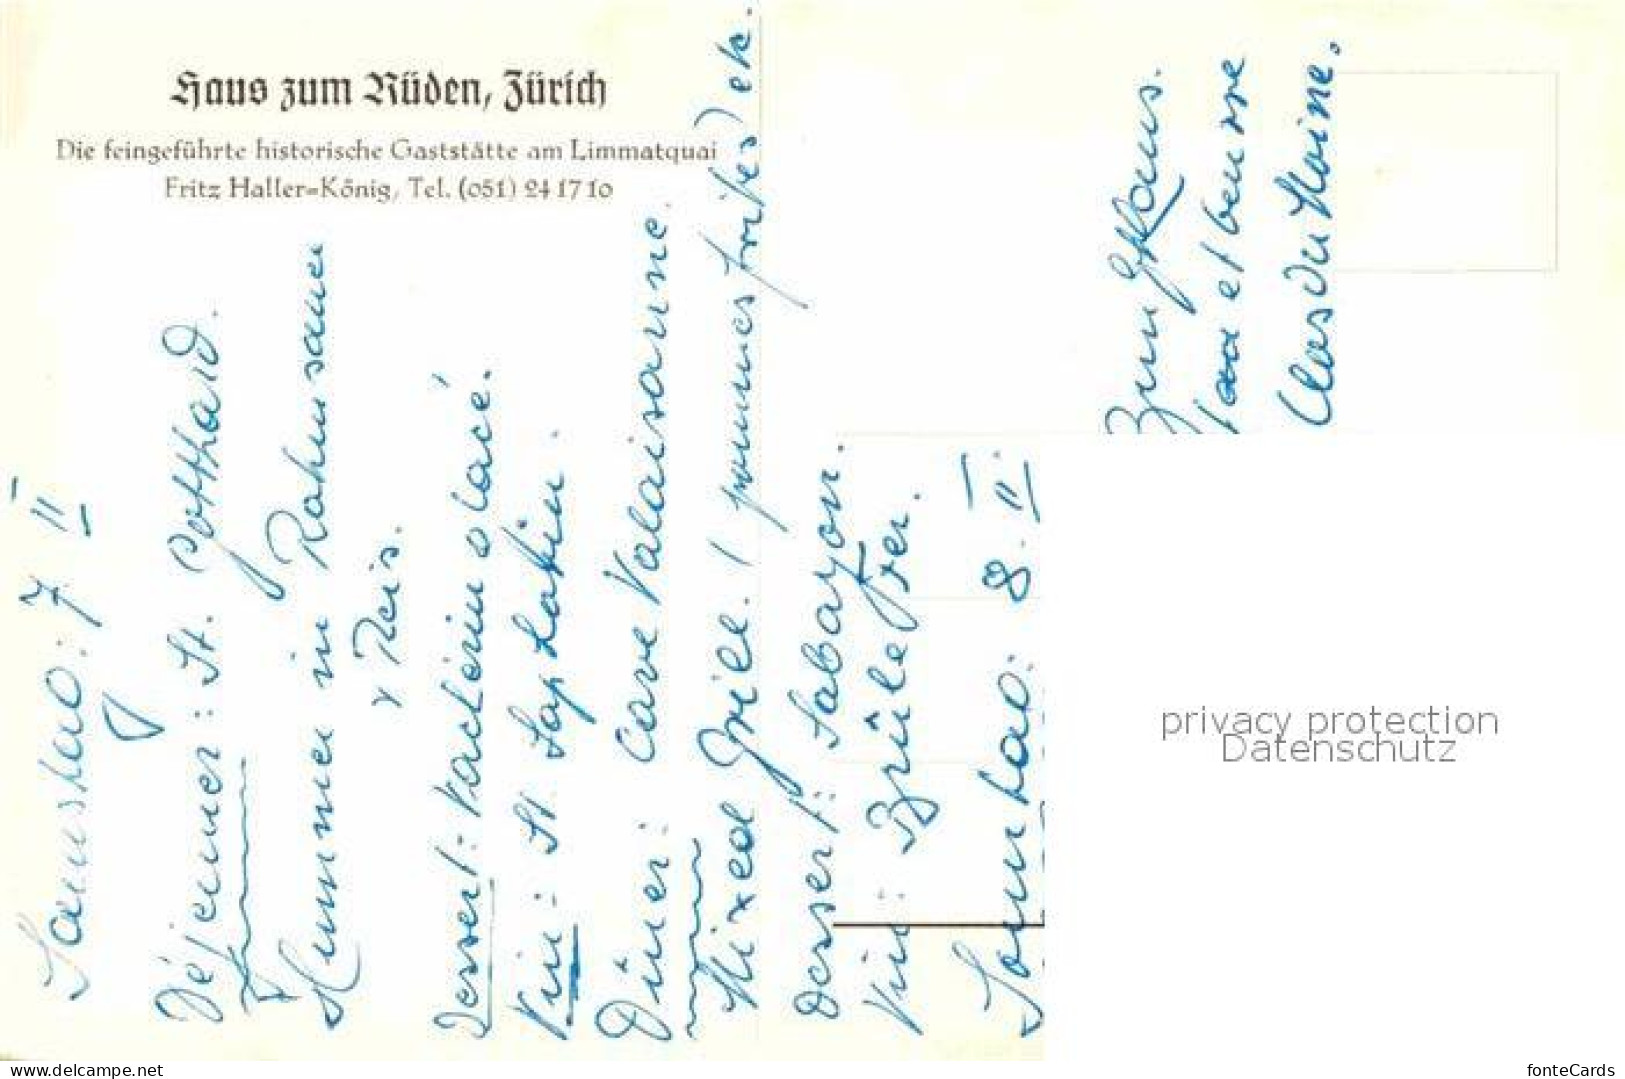 Haus zum Rüden, Zürich
Die feingeführte historische Gaststätte am Limmatquai
Fritz Haller=König, Tel. (051) 24 17 10
Samstag: 7 II
Déjeuner: St. Gotthard.
Hummer in Rahmsauce
& Reis.
Dessert: Vacherin glacé.
Vin: St. Saphorin.
Dîner: Cave Valaisanne.
Mixed Grill. (pommes frites) etc.
Dessert: Sabayon.
Vin: Brûlefer.
Sonntag: 8. II.
Zunfthaus.
et beurre
privacy protection
Datenschutz
www.delcampe.net
fonteCards